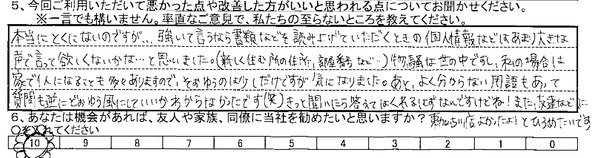 5、今回ご利用いただいて悪かった点や改善した方がいいと思われる点についてお聞かせください。
※一言でも構いません。率直なご意見で、私たちの至らないところを教えてください。
本当にとくにないのですが… 強いて言うなら書類などを読み上げていただくときの個人情報などはあまり大きな
声で言って欲しくないかな…と思いました。(新しく住む所の住所、部屋番号など…)物騒な世の中ですし、私の場合は
家で1人になることも多々ありますので、そのは少しだけですが気になりました。あと、よく分からない用語もあって
質問も逆にどおゆう風にしていいかわからなかったです(笑)きっと聞いたら答えてはくれるはずなんですけどね!また、友達などに
6、あなたは機会があれば、友人や家族、同僚に当社を勧めたいと思いますか? よかったよ!とひろめたいです
○をつけてください
10 9 8 7 6 5 4 3 2 1 0